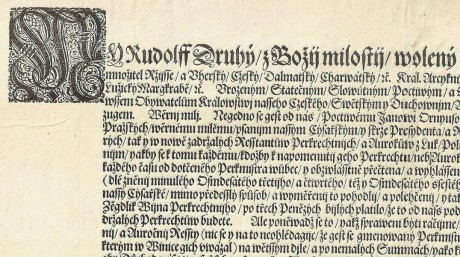 MY Rudolff Druhý / z Božij milostij / wolený
množitel Ržijsse / a Vherský / Cžeský / Dalmatský / Charwátský / ꝛč. Král. Arcykn
Lužický Margkrabě / ꝛč. Vrozeným / Statečným / Slowútným / Poctiwým / a
wssem Obywatelům Králowstwij nasseho Cžeského / Swětským y Duchowným / 
zugem. Wěrnij milij. Negedno se gest od nás / Poctiwému Janowi Ornyuso
Pražských / wěrnému milému / psanijm nassým Cýsařským / y skrze Presydenta / a R
/ tak y w nowě zadržalých Resstantůw Perkrechtnijch / a Aurokůw z Luk / Pol
nijm / yakby se k tomu každému / kdožby k napomenutij geho Perkrechtu / neb Aurok
každého času od dotčeného Perkmistra wůbec / y obzwlásstně přečtená / a wyhlássen
(dle znění minulého Osmdesátého třetijho / a čtwrtého / též y Osmdesátého ssestéh
nassý Cýsařské / mimo předesslý způsob / a wyměřenij to pohodlij / a polehčenij / y tak
Zěgdlijk Wijna Perkrechtnijho / po třech Penězých bijlých platilo / že to od nás pod
držalých Perkrechtůw budete. Ale poněwadž se to / yakž sprawenij býti ráčijme /
nij / a Auročnij Ressty (nic se y na to neohlédagijce / že gest se gmenowaný Perkmistr
kterým w Winicech uwázal) na wětssým djle / a po nemalých Summách / yako k